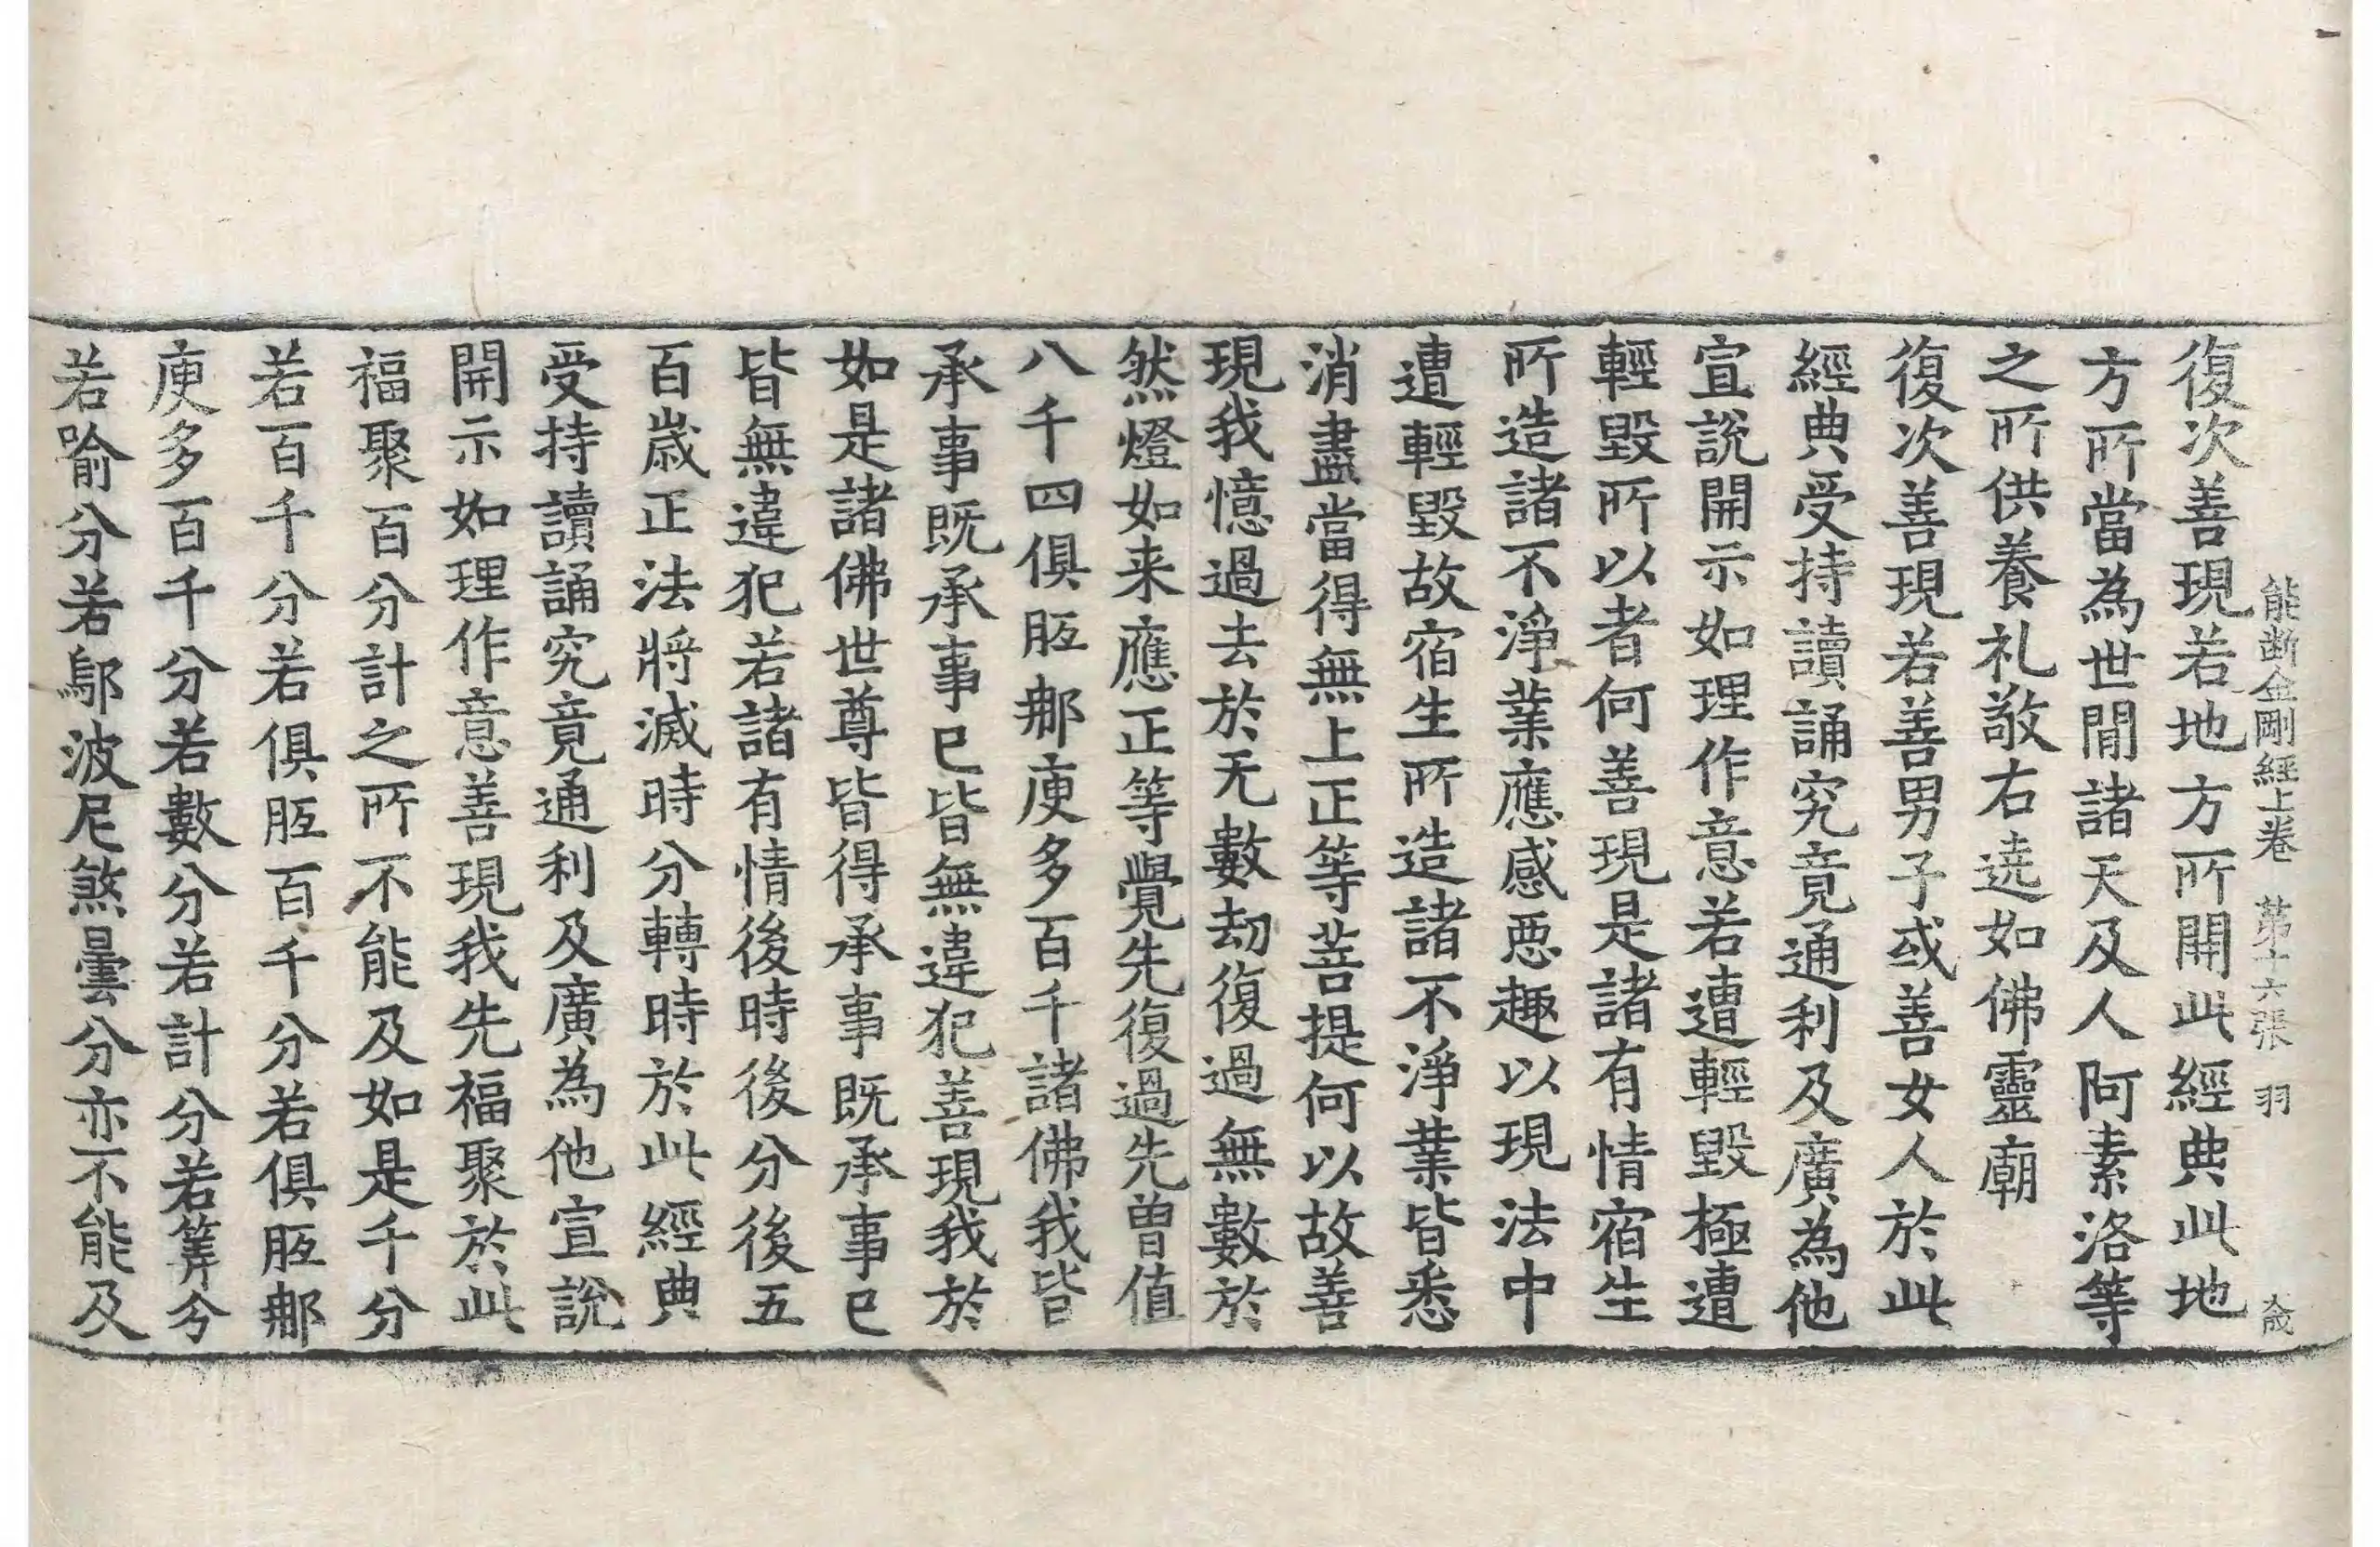 能断金剛經上卷 苐十六張 羽
復次善現若地方所開此經典此地
方所當為世間諸天及人阿素洛等
之所供養礼敬右遶如佛靈廟
復次善現若善男子或善女人於此
經典受持讀誦究竟通利及廣為他
宣說開示如理作意若遭輕毀極遭
輕毀所以者何善現是諸有情宿生
所造諸不淨業應感惡趣以現法中
遭輕毀故宿生所造諸不淨業皆悉
消盡當得無上正等菩提何以故善
現我憶過去於无數劫復過無數於
然燈如来應正等覺先復過先曽值
八千四俱胝那庾多百千諸佛我皆
承事既承事已皆無違犯善現我於
如是諸佛世尊皆得承事既承事已
皆無違犯若諸有情後時後分後五
百歲正法將滅時分轉時於此經典
受持讀誦究竟通利及廣為他宣說
開示如理作意善現我先福聚於此
福聚百分計之所不能及如是千分
若百千分若俱胝百千分若俱胝那
庾多百千分若數分若計分若筭分
若喻分若鄔波尼煞曇分亦不能及